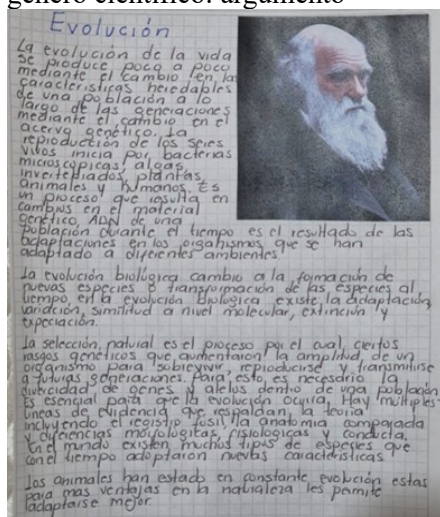 género científico: argumento
Evolución
La evolución de la vida
se produce poco a poco
mediante el cambio en las
características heredables
de una población a lo
largo de las generaciones
mediante el cambio en el
acervo genético. La
reproducción de los seres
vivos inicia por bacterias
microscópicas, algas,
invertebrados, plantas,
animales y humanos. Es
un proceso que resulta en
cambios en el material
genético ADN de una
población durante el tiempo es el resultado de las
adaptaciones en los organismos que se han
adaptado a diferentes ambientes.
La evolución biológica cambio a la formación de
nuevas especies o transformación de las especies al
tiempo, en la evolución biologica existe, la adaptación,
variación, similitud a nivel molecular, extinción y
especiación.
La selección natural es el proceso por el cual, ciertos
rasgos genéticos que aumentaron la amplitud, de un
organismo para sobrevivir, reproducirse y transmitirse
a futuras generaciones. Para esto, es necesario la
divercidad de genes y alelos dentro de una población
Es esencial para que la evolución ocurra, Hay múltiples
líneas de evidencia que respaldan, la teoría
incluyendo el registro fósil, la anatomía comparada
y diferencias morfologitas, fisiologicas y conducta.
En el mundo existen muchos tipos de especies que
con el tiempo adoptaron nuevas características
Los animales han estado en constante evolución estas
para mas ventajas en la natuialeza les permite
adaptarse mejor.